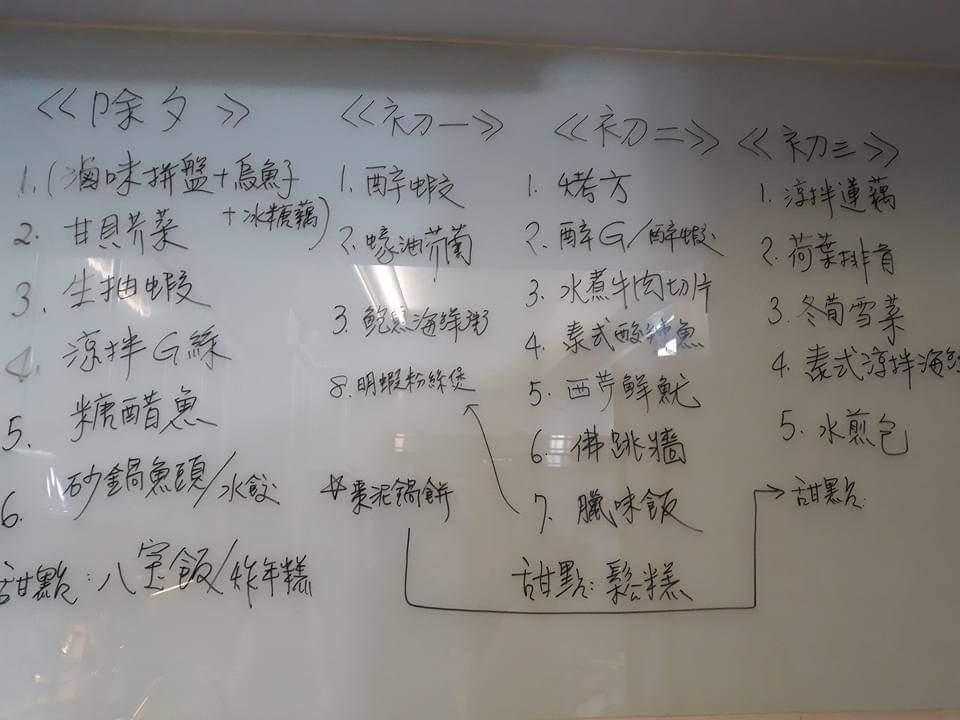 <<除夕>>
1.(滷味拼盤+烏魚子
+冰糖藕)
2. 甘貝芥菜
3. 生抽蝦
4. 涼拌G絲
5. 糖醋魚
6. 砂鍋魚頭/水餃
甜點:八宝飯/炸年糕
<<初一>>
1. 醉蝦
2. 蠔油芥菌
3. 鮑魚海鮮粥
8. 明蝦粉絲煲
☆棗泥鍋餅
<<初二>>
1. 烤方
2. 醉G/醉蝦
3. 水煮牛肉切片
4. 泰式酸辣魚
5. 西芹鮮魷
6. 佛跳牆
7. 臘味飯
甜點:鬆糕
<<初三>>
1. 涼拌蓮藕
2. 荷葉排骨
3. 冬筍雪菜
4. 泰式涼拌海
5. 水煎包
甜點: